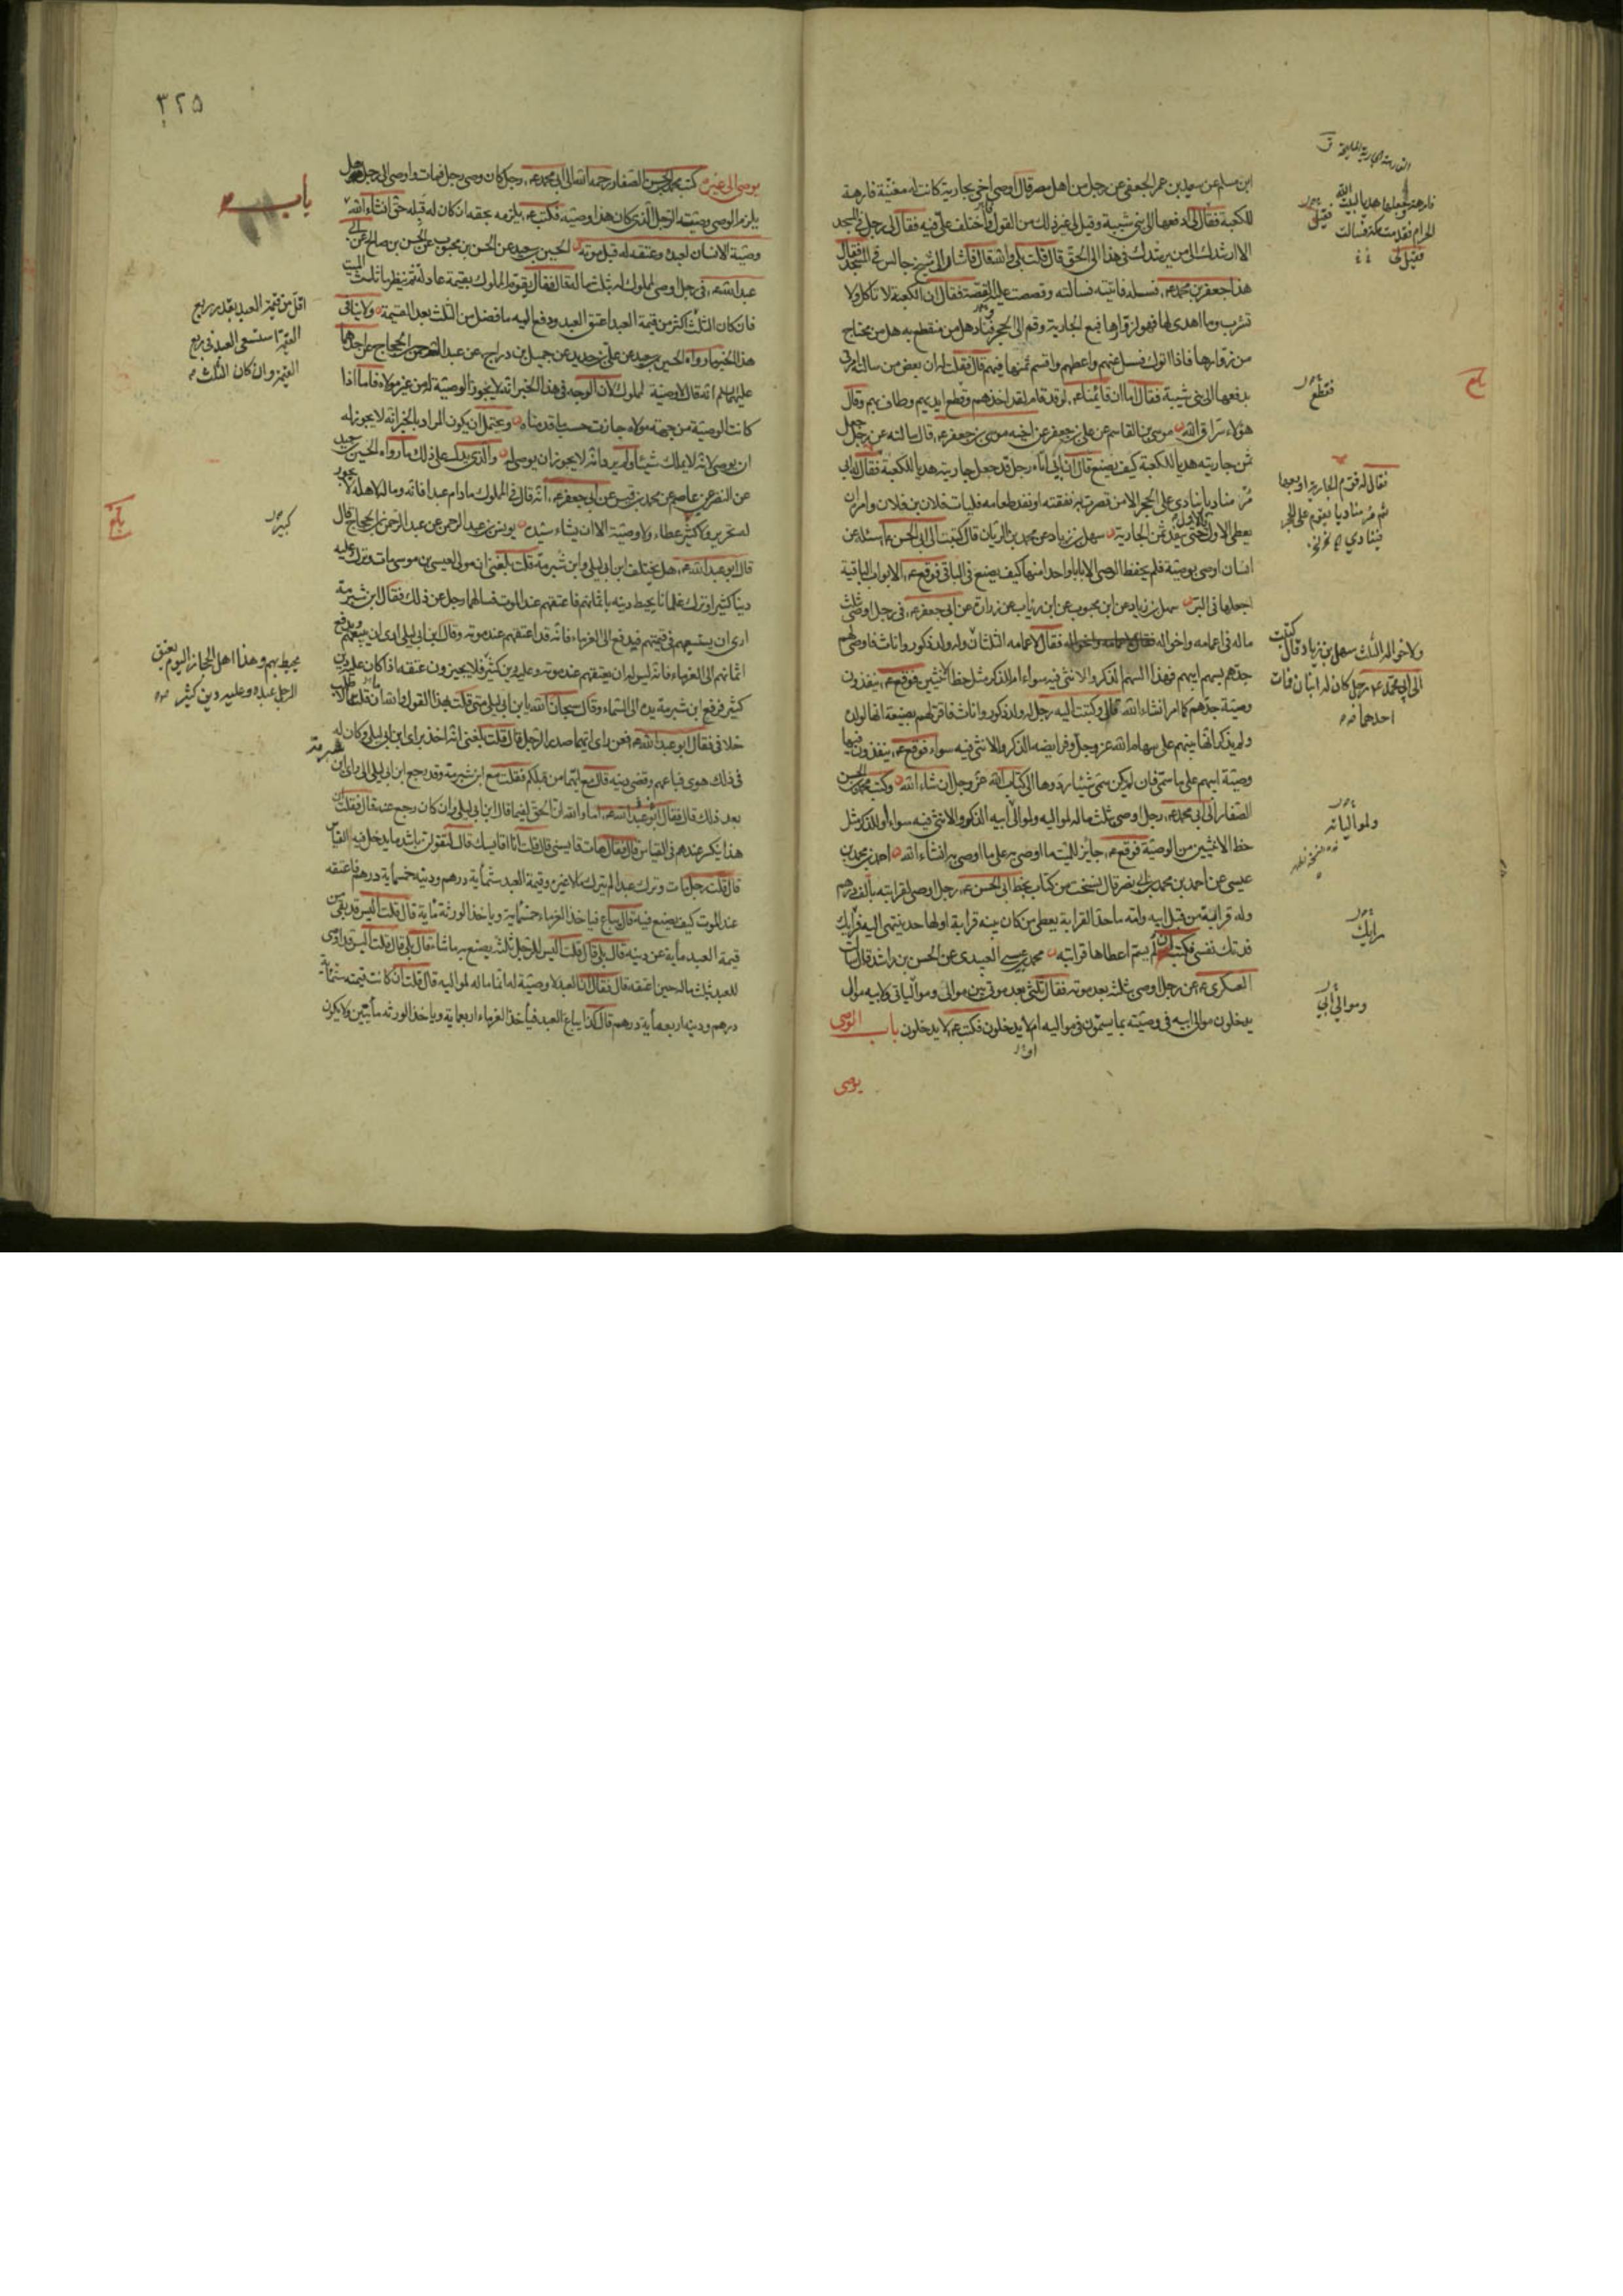 ابن مسلم عن سعيد بن عمر الجعفى عن رجل من اهل مصر قال اوصى اخى بجارية كانت له مغنية فارهة
للكعبة فقال لى ادفعها الى بنى شيبة وقيل لى غير ذلك من القول فاختلف على فيه فقال لى رجل فى المسجد
الا ارشدك الى من يرشدك فى هذا الى الحق قال قلت بلى والله قال فاشار الى شيخ جالس فى المسجد فقال
هذا جعفر بن محمد ع فسله فاتيته فسالته وقصصت عليه القصة فقال ان الكعبة لا تاكل ولا
تشرب وما اهدى لها فهو لزوارها فبع الجارية وقم الى الحجر فناد هل من منقطع به هل من محتاج
من زوارها فاذا اتوك فسل عنهم واعطهم واقسم ثمنها فيهم قال فقلت له ان بعض من سالته امرنى
بدفعها الى بنى شيبة فقال اما ان قائمنا ع لو قد قام لقد اخذهم وقطع ايديهم وطاف بهم وقال
هؤلاء سراق الله موسى بن القاسم عن على بن جعفر عن اخيه موسى بن جعفر ع قال سالته عن رجل جعل
ثمن جاريته هديا للكعبة كيف يصنع قال ان ابى اتاه رجل قد جعل جاريته هديا للكعبة فقال له ابى
مر مناديا ينادى على الحجر الا من قصرت به نفقته او نفد طعامه فليات فلان بن فلان وامره ان
يعطى الاول فالاول حتى ينفد ثمن الجارية سهل بن زياد عن محمد بن الريان قال كتبت الى ابى الحسن ع اسئله عن
انسان اوصى بوصية فلم يحفظ الوصى الا بابا واحدا منها كيف يصنع فى الباقى فوقع ع الابواب الباقية
اجعلها فى البر سهل بن زياد عن ابن محبوب عن ابن رئاب عن زرارة عن ابى جعفر ع فى رجل اوصى بثلث
ماله فى اعمامه واخواله فقال لاعمامه الثلثان وله ولد ذكور واناث فاوصى لهم
جدهم بسهم ابيهم فهذا السهم الذكر والانثى فيه سواء ام للذكر مثل حظ الانثيين فوقع ع ينفذون
وصية جدهم كما امر انشاء الله وكتبت اليه رجل له ولد ذكور واناث فاقر لهم بضيعة انها لولده
ولم يذكر انها بينهم على سهام الله عز وجل وفرايضه الذكر والانثى فيه سواء فوقع ع ينفذون فيها
وصية ابيهم على ما سمى فان لم يكن سمى شيئا ردوها الى كتاب الله عز وجل ان شاء الله وكتب محمد بن الحسن
الصفار الى ابى محمد ع رجل اوصى بثلث ماله لمواليه ولموالى ابيه الذكر والانثى فيه سواء او للذكر مثل
حظ الانثيين من الوصية فوقع ع جايز للميت ما اوصى به على ما اوصى به انشاء الله احمد بن محمد بن
عيسى عن احمد بن محمد بن ابى نصر قال نسخت من كتاب بخط ابى الحسن ع رجل اوصى لقرابته بالف درهم
وله قرابة من قبل ابيه وامه ما حد القرابة يعطى من كان بينه قرابة او لها حد ينتهى اليه فرايك
فدتك نفسى فكتب ان لم يسم اعطاها قرابته محمد بن عيسى العبيدى عن الحسن بن راشد قال سالت
العسكرى ع عن رجل اوصى بثلثه بعد موته فقال ثلثى بعد موتى بين موالى وموالياتى ولابيه موال
يدخلون موالى ابيه فى وصيته بما يسمون فى مواليه ام لا يدخلون فكتب ع لا يدخلون باب الوصى
يوصى
فارهة وجعلها هديا لبيت الله
الحرام فقدمت مكة فسالت
فقيل لى
فقطع
فقال له قوم الجارية او بعها
ثم مر مناديا يقوم على الحجر
فينادى
ولاخواله الثلث سهل بن زياد قال كتبت
الى ابى محمد ع رجل كان له ابنان فمات
احدهما
ولمواليات
رايك
وموالى ابى
بلغ
٣٢٥
يوصى الى غيره كتب محمد بن الحسن الصفار رحمه الله الى ابى محمد ع رجل كان وصى رجل فمات واوصى الى رجل هل
يلزم الوصى وصية الرجل الذى كان هذا وصيه فكتب ع يلزمه بحقه ان كان له قبله حق انشاء الله
وصية الانسان لعبده وعتقه له قبل موته الحسين بن سعيد عن الحسن بن محبوب عن الحسن بن صالح عن ابى
عبد الله ع فى رجل اوصى لمملوك له بثلث ماله قال فقال يقوم المملوك بقيمة عادلة ثم ينظر ما ثلث الميت
فان كان الثلث اكثر من قيمة العبد اعتق العبد ودفع اليه ما فضل من الثلث بعد القيمة ولا ينافى
هذا الخبر ما رواه الحسين بن سعيد عن على بن حديد عن جميل بن دراج عن عبد الرحمن بن الحجاج عن احدهما
عليهما السلم انه قال لا وصية لمملوك لان الوجه فى هذا الخبر انه لا يجوز الوصية له من غير مولاه فاما اذا
كانت الوصية من جهة مولاه جازت حسب ما قدمناه ويحتمل ان يكون المراد بالخبر انه لا يجوز له
ان يوصى لانه لا يملك شيئا ولم يرد انه لا يجوز ان يوصى له والذى يدل على ذلك ما رواه الحسين بن سعيد
عن النضر عن عاصم عن محمد بن قيس عن ابى جعفر ع انه قال فى المملوك ما دام عبدا فانه وماله لاهله لا يجوز
له تحرير ولا كثير عطاء ولا وصية الا ان يشاء سيده يونس بن عبد الرحمن عن عبد الرحمن بن الحجاج قال
قال ابو عبد الله ع هل يختلف ابن ابى ليلى وابن شبرمة قلت بلغنى ان مولى لعيسى بن موسى مات وترك عليه
دينا كثيرا وترك غلمانا يحيط دينه باثمانهم فاعتقهم عند الموت فسالهما رجل عن ذلك فقال ابن شبرمة
ارى ان يستسعيهم فى قيمتهم فيدفع الى الغرماء فانه قد اعتقهم عند موته وقال ابن ابى ليلى ارى ان يبيعهم ويدفع
اثمانهم الى الغرماء فانه ليس له ان يعتقهم عند موته وعليه دين كثير فلا يجيزون عتقه اذا كان عليه دين
كثير فرفع ابن شبرمة يده الى السماء وقال سبحان الله يا ابن ابى ليلى متى قلت بهذا القول والله ان قلته الا طلب
خلافى فقال ابو عبد الله ع فعن راى ايهما صدر الرجل قال قلت بلغنى انه اخذ براى ابن ابى ليلى وكان له
فى ذلك هوى فباعهم وقضى دينه قال مع ايهما من قبلكم فقلت مع ابن شبرمة وقد رجع ابن ابى ليلى الى راى ابن
شبرمة
بعد ذلك قال فقال ابو عبد الله ع اما والله ان الحق لفيما قال ابن ابى ليلى وان كان رجع عنه قال فقلت ان
هذا ينكر عندهم فى القياس قال فقال هات قايسنى قال قلت انا اقايسك قال لتقولن باشد ما يدخل فيه القياس
قال قلت رجل مات وترك عبدا لم يترك مالا غيره وقيمة العبد ستمأية درهم ودينه خمسماية درهم فاعتقه
عند الموت كيف يصنع فيه قال يباع فياخذ الغرماء خمسماية وياخذ الورثة ماية قال قلت اليس قد بقى من
قيمة العبد مأية عن دينه قال بلى قال قلت اليس للرجل ثلثه يصنع به ما شاء قال بلى قال قلت اليس قد اوصى
للعبد بثلث ماله حين اعتقه قال فقال ان العبد لا وصية له انما ماله لمواليه قال قلت ان كانت قيمته ستماية
درهم ودينه اربعمأية درهم قال كذا يباع العبد فيأخذ الغرماء اربعماية وياخذ الورثه مأيتين ولا يكون
باب
اقل من قيمة العبد بقدر ربع
القيمة استسعى العبد فى ربع
القيمة وان كان الثلث
كبير
بلغ
يحيط بهم وهذا اهل الحجاز اليوم يعتق
الرجل عبده وعليه دين كثير